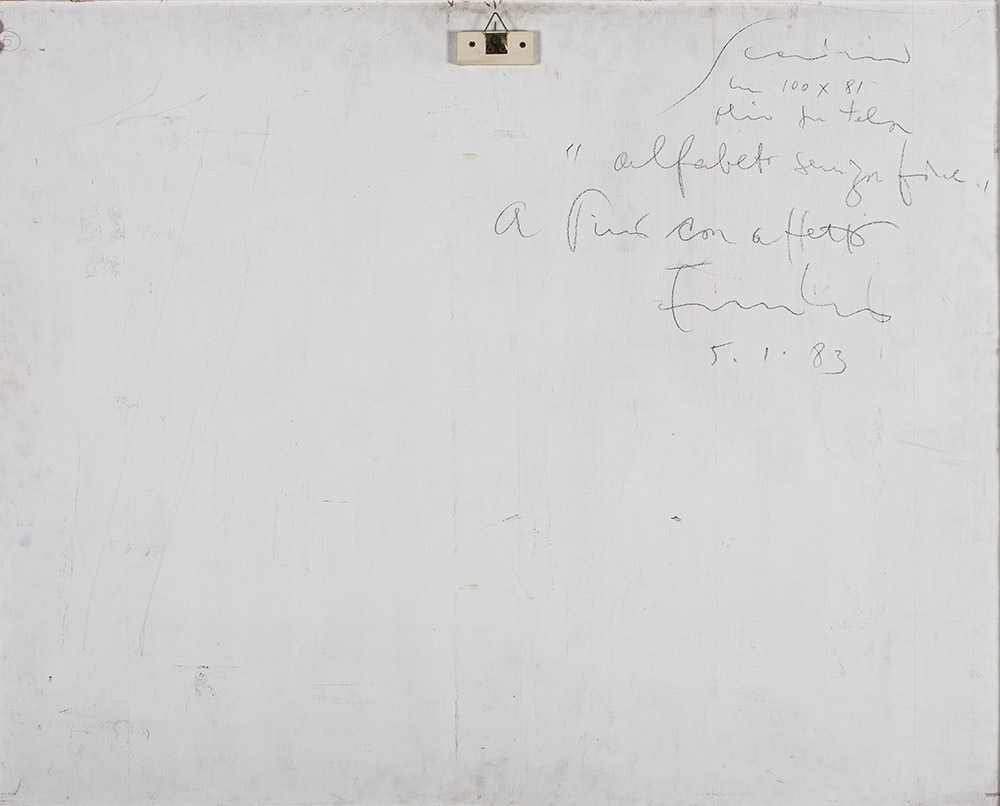 Scanavino
cm 100 x 81
olio su tela
"alfabeto senza fine"
A Pino con affetto
5. 1. 83